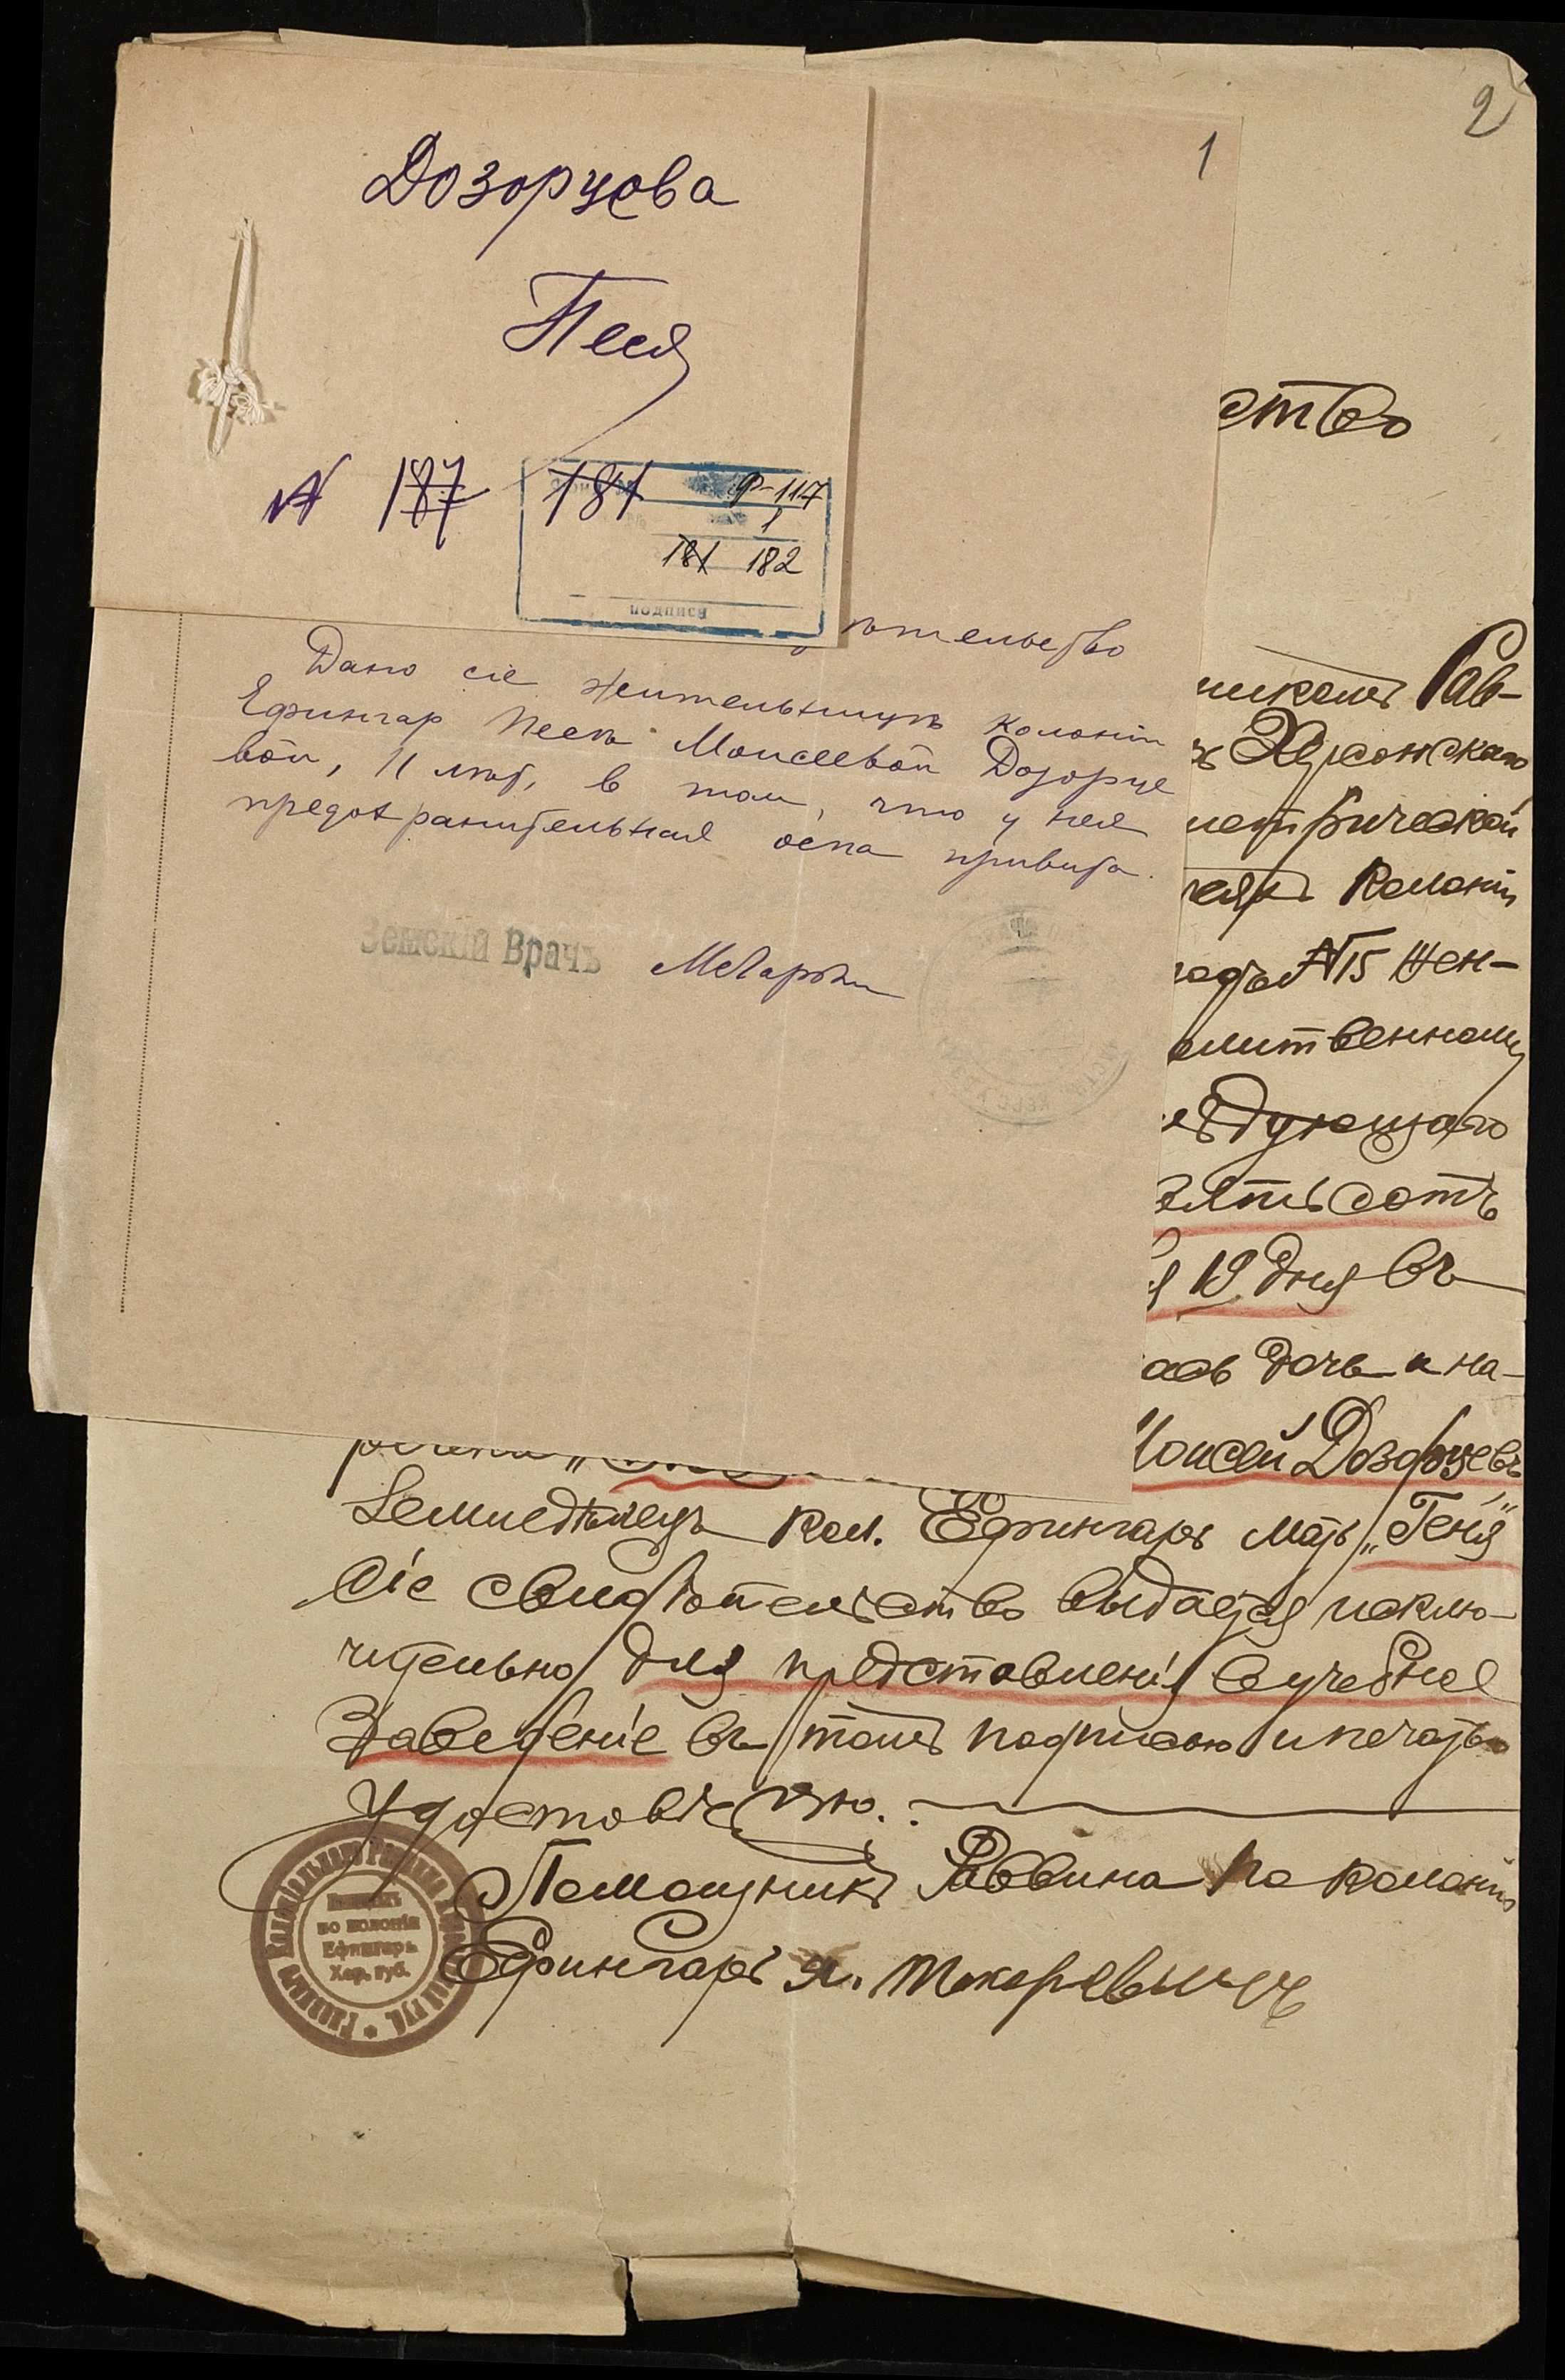 2
1
Дозорцева
Песя
№ 187 181
Ф-117
1
181 182
подпись
ство
ѣтельство
Дано сіе жительницѣ колоніи
Ефингар Песѣ Моисеевой Дозорце
вой, 11 лѣт, в том, что у нея
предохранительная оспа привита.
Земскій Врачъ
никомъ Рав-
Херсонскаго
метрической
колоніи
№ 15 жен-
молитвенному
ѣдующаго
вятьсотъ
19 дня въ
ась дочь и на-
речена
Моисей Дозорцевъ
Земледѣлецъ кол. Ефингаръ мать „Геня"
Сіе свидѣтельство выдается исклю-
чительно для представленія в учебное
заведеніе въ томъ подписью и печатью
удостовѣряю.
Помощникъ Раввина по колоніи
Ефингаръ Я. Токаревичъ
по колоніи
Ефингаръ
Хер. губ.